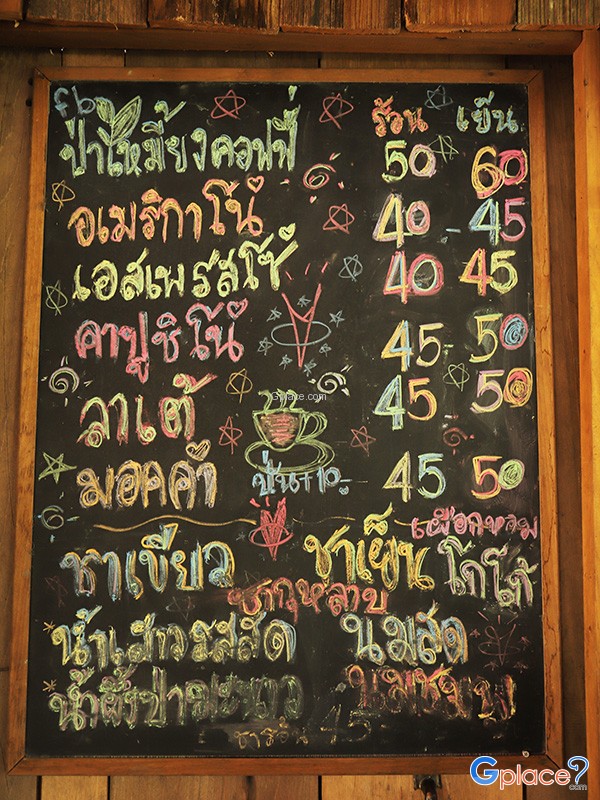 fb
ร้อน เย็น
ป่าไหมี้ยงคอฟฟี่ 50 60
อเมริกาโน่ 40 - 45
เอสเพรสโซ่ 40 45
คาปูชิโน่ 45 - 50
ลาเต้ 45 - 50
Gplace.com
มอคค่า ปั่น+10.- 45 50
เผือกหอม
ชาเขียว ชาเย็น โกโก้
ชากุหลาบ
น้ำเสาวรสสด นมสด
น้ำผึ้งป่ามะนาว นมชมพู
ชาร้อน 45
Gplace?.com